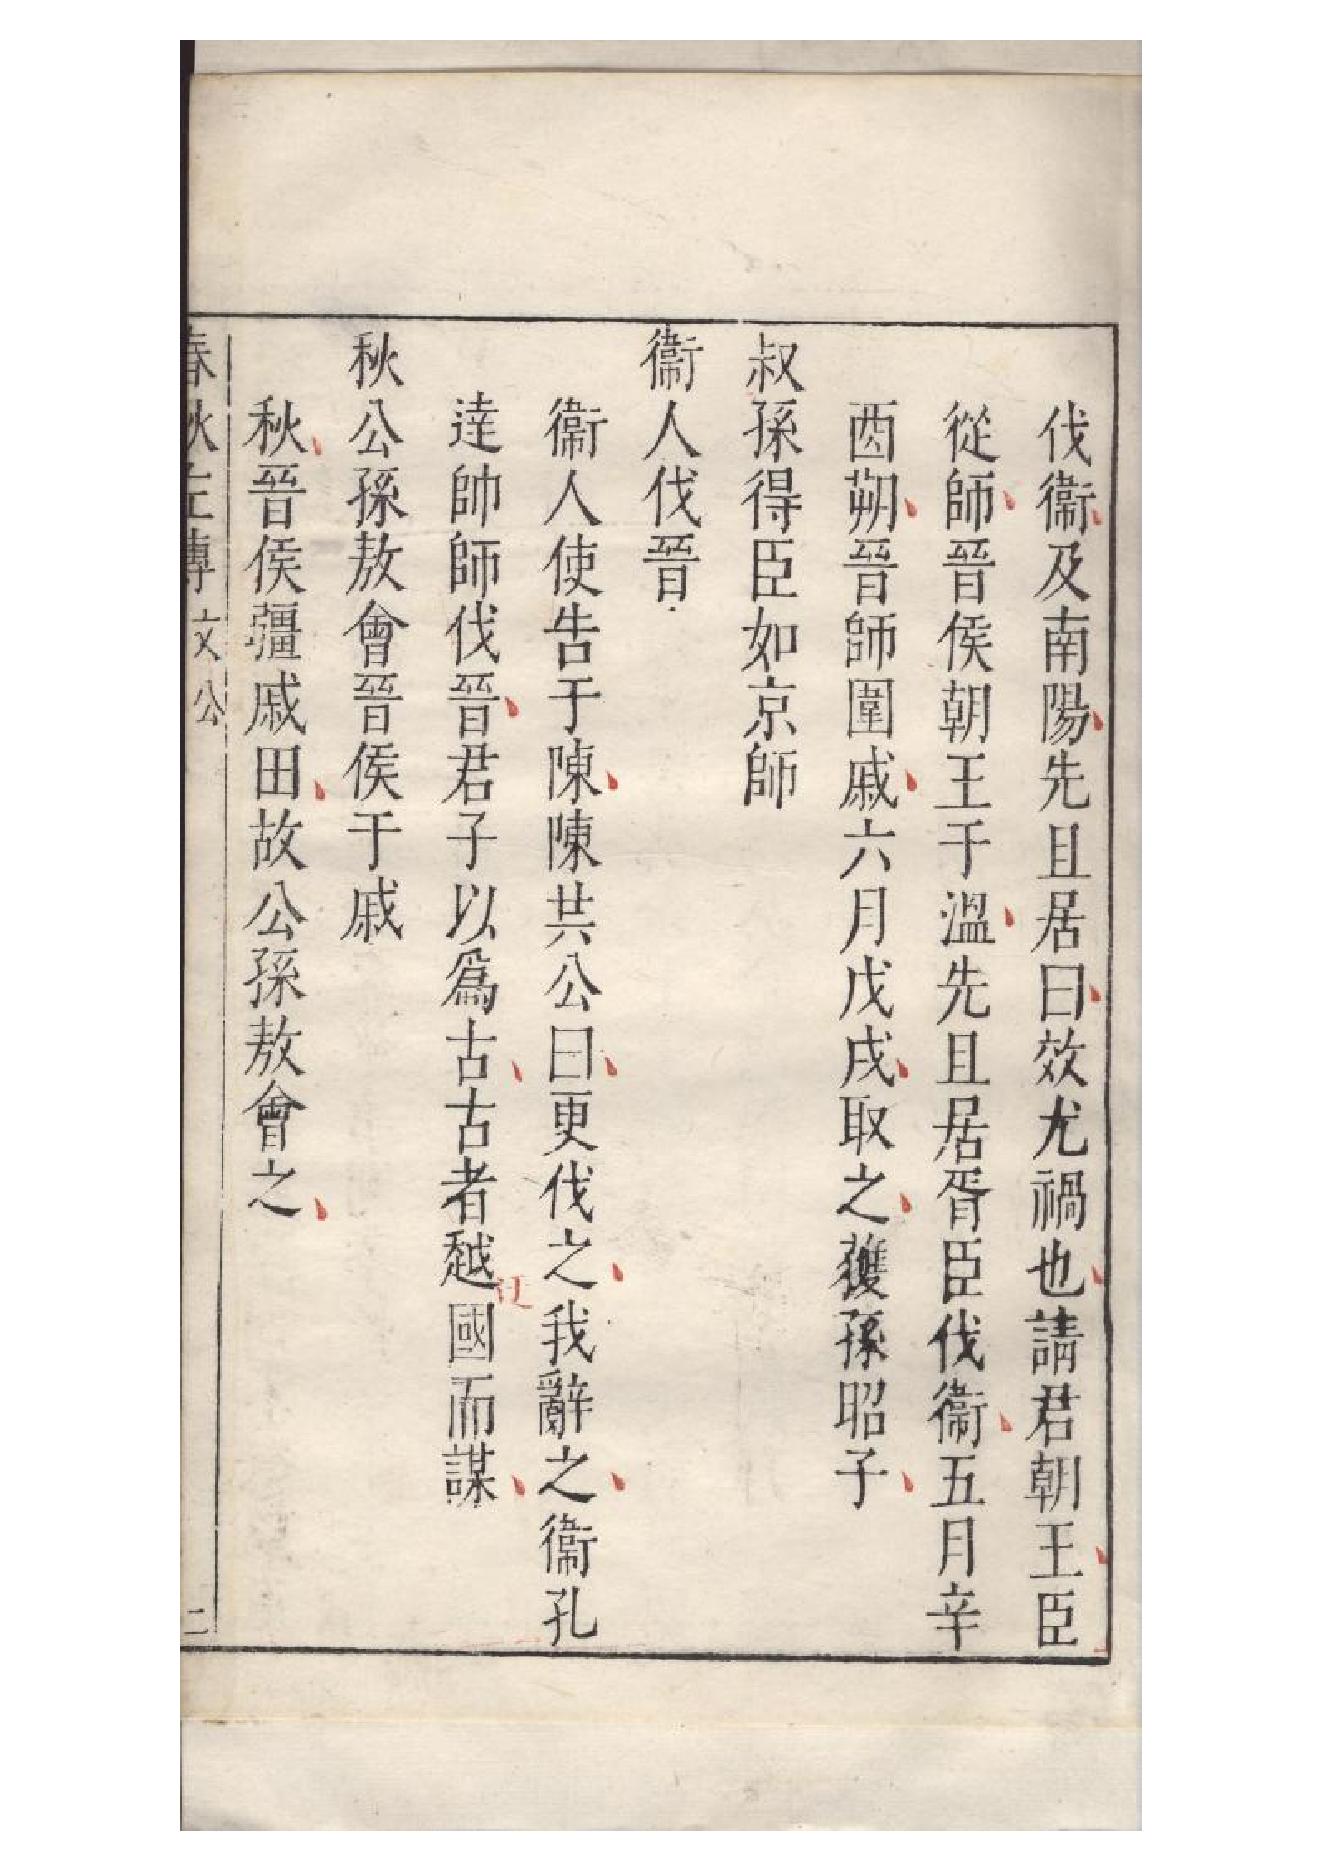 伐衞及南陽先且居曰效尤禍也請君朝王臣
從師晉侯朝王于溫先且居胥臣伐衞五月辛
酉朔晉師圍戚六月戊戌取之獲孫昭子
叔孫得臣如京師
衞人伐晉
衞人使告于陳陳共公曰更伐之我辭之衞孔
達帥師伐晉君子以爲古古者越國而謀
秋公孫敖會晉侯于戚
秋晉侯疆戚田故公孫敖會之
春秋左傳 文公 二